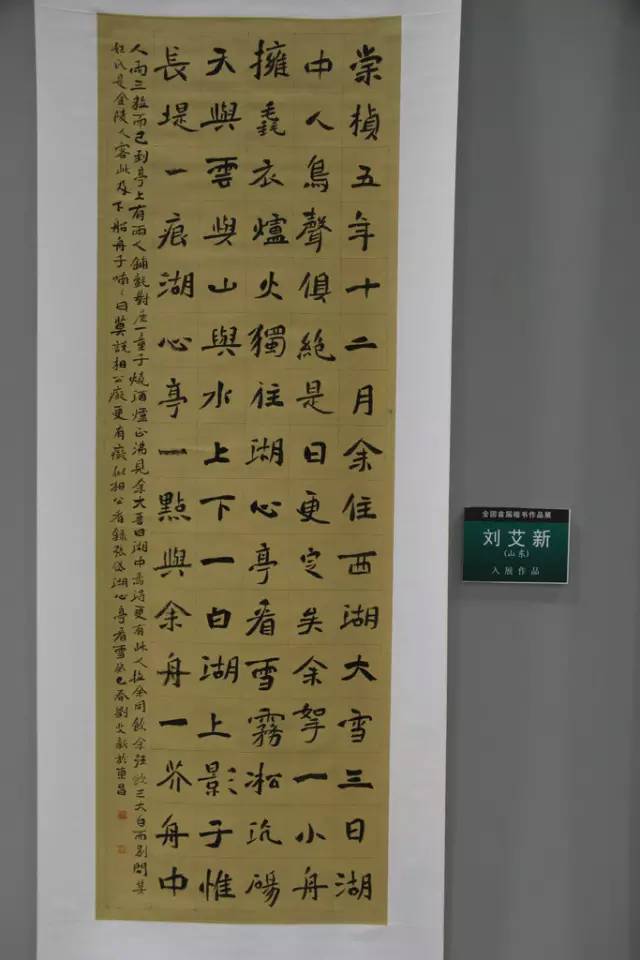 崇禎五年十二月余住西湖大雪三日湖
中人鳥聲俱絶是日更定矣余拏一小舟
擁毳衣爐火獨往湖心亭看雪霧凇沆碭
天與雲與山與水上下一白湖上影子惟
長堤一痕湖心亭一點與余舟一芥舟中
人兩三粒而已到亭上有兩人鋪氈對坐一童子燒酒爐正沸見余大喜曰湖中焉得更有此人拉余同飲余强飲三大白而别問其
姓氏是金陵人客此及下船舟子喃〻曰莫説相公癡更有癡似相公者錄張岱湖心亭看雪癸巳春劉艾新於東昌
全国首届楷书作品展
刘艾新
(山东)
入展作品